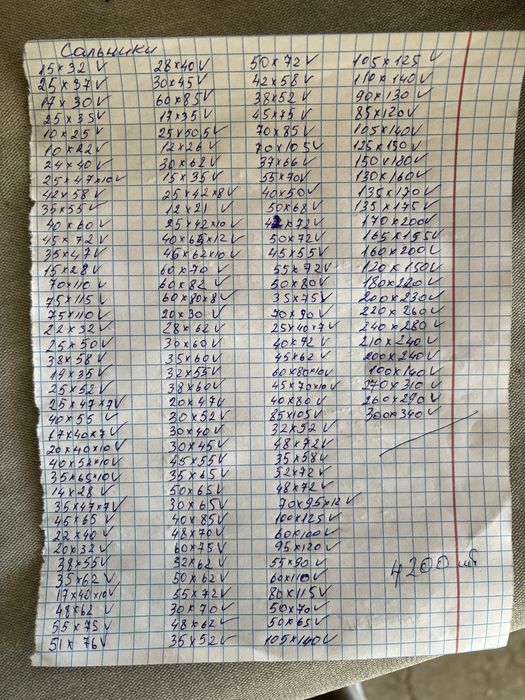 Сальники
15×32 V
25×37 V
17×30 V
25×35 V
10×25 V
10×22 V
24×40 V
25×47×10 V
42×58 V
35×55 V
40×60 V
45×72 V
35×47 V
15×28 V
70×110 V
75×115 V
75×110 V
22×32 V
25×50 V
38×58 V
19×35 V
25×52 V
25×47×7 V
40×55 V
17×40×7 V
20×40×10 V
40×52×10 V
35×65×10 V
14×28 V
35×47×7 V
45×65 V
22×40 V
20×32 V
38×55 V
35×62 V
17×40×10 V
48×62 V
55×75 V
51×76 V
28×40 V
30×45 V
60×85 V
17×35 V
25×50,5 V
12×26 V
30×62 V
15×35 V
25×42×8 V
12×21 V
25×42×10 V
40×65×12 V
45×62×10 V
60×70 V
60×82 V
60×80×8 V
20×30 V
28×62 V
30×60 V
35×60 V
32×55 V
38×60 V
20×47 V
30×52 V
30×40 V
30×45 V
45×55 V
35×65 V
50×65 V
30×65 V
40×85 V
48×70 V
60×75 V
32×62 V
50×62 V
55×72 V
30×70 V
48×62 V
35×52 V
50×72 V
42×58 V
38×52 V
45×75 V
70×85 V
70×105 V
37×66 V
55×70 V
40×50 V
50×68 V
42×72 V
50×72 V
45×55 V
55×72 V
50×80 V
35×75 V
70×90 V
25×40×7 V
40×72 V
45×62 V
60×80×10 V
45×70×10 V
40×80 V
85×105 V
32×52 V
48×72 V
35×58 V
52×72 V
48×72 V
70×95×12 V
100×125 V
60×100 V
95×120 V
55×90 V
60×110 V
80×115 V
50×70 V
50×65 V
105×140 V
105×125 V
110×140 V
90×130 V
85×120 V
105×140 V
125×150 V
150×180 V
130×160 V
135×170 V
135×175 V
170×200 V
165×195 V
160×200 V
120×150 V
180×220 V
200×230 V
220×260 V
240×280 V
210×240 V
200×240 V
100×140 V
270×310 V
260×290 V
300×340 V
4200 шт